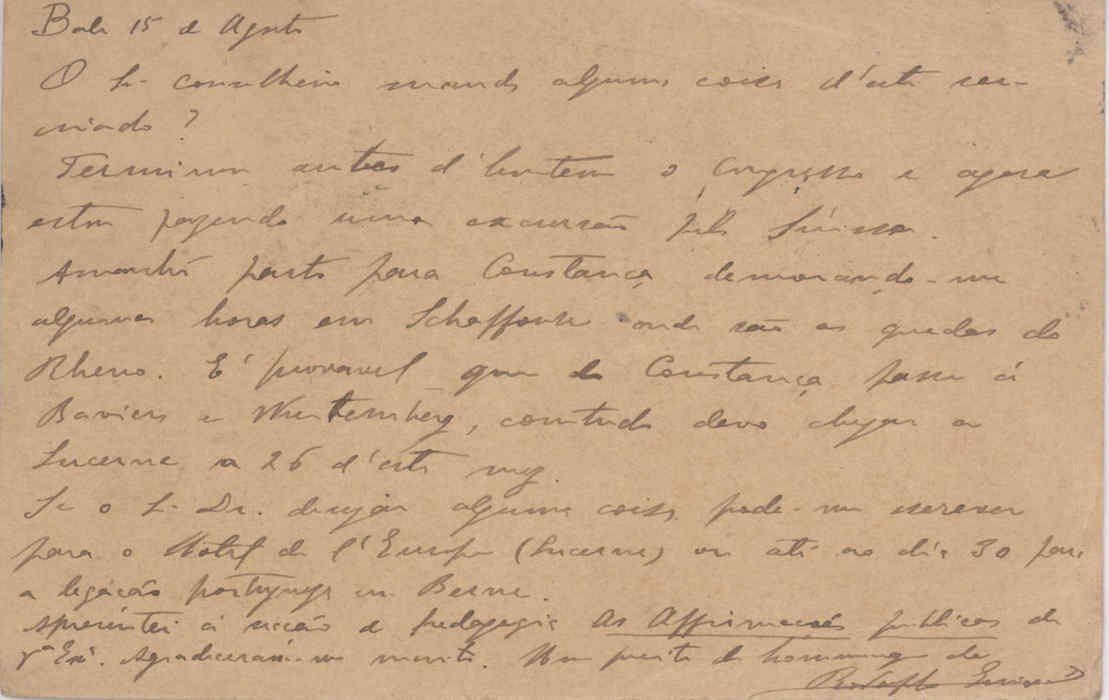 Bale 15 de Agosto
O Sr. conselheiro manda alguma coisa d'este seu
criado?
Terminou antes d'hontem o Congresso e agora
estou fazendo uma excursão pela Suissa.
Amanhã parto para Constança demorando-me
algumas horas em Schaffouse onde são as quedas do
Rheno. É provavel que de Constança passe á
Baviera e Wurtemberg, comtudo devo chegar a
Lucerne a 26 d'este mez.
Se o Sr. Dr. desejar alguma coisa pode-me escrever
para o Hotel de l'Europe (Lucerne) ou até ao dia 30 para
a legação portugueza em Berne.
Apresentei á secção de pedagogia As Affirmações publicas de
V. Exª. Agradeceram-me muito. Um preito de homenagem de